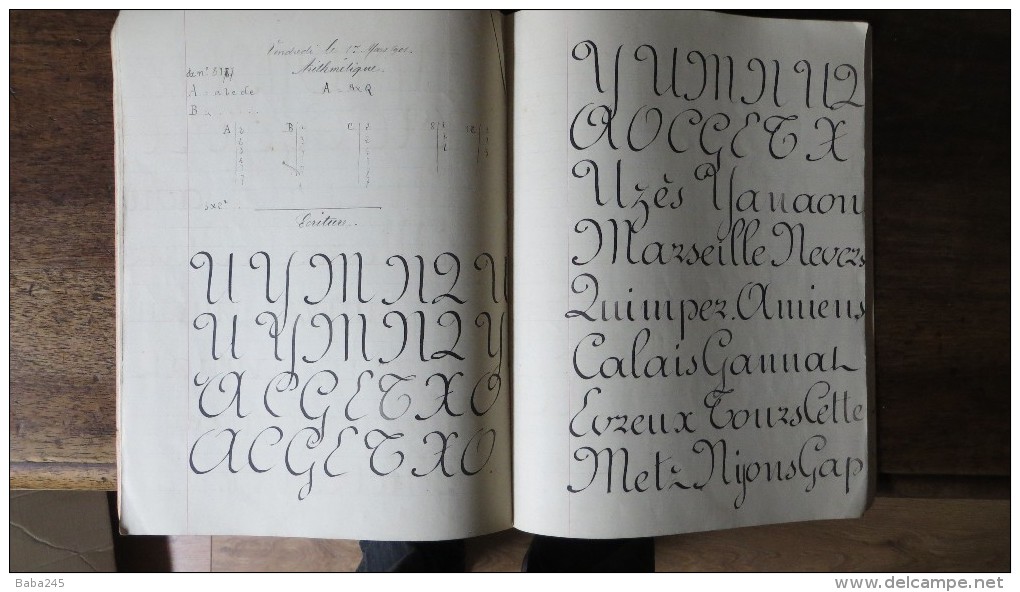 Vendredi le 17 Mars 901.
Arithmétique.
de n°
A abcde
B
A B C
Ecriture.
U Y M N Q U
U Y M N Q Y
A C G E T X O
A C G E T X O
Y U M N U Q
A O C G E T X
Uzès Yanaon
Marseille Nevers
Quimper. Amiens
Calais Gannat
Evreux Tours Cette
Metz Nyons Gap
Baba245
www.delcampe.net